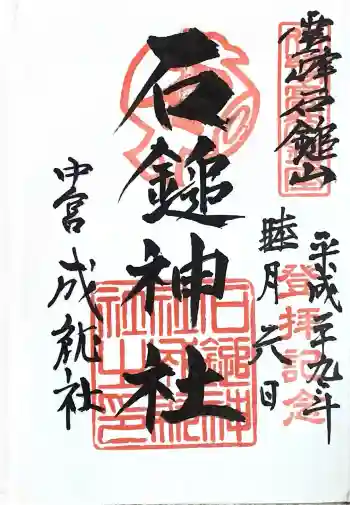 霊峰石鎚山
平成二十九年
登拝記念
睦月六日
石鎚神社
中宮 成就社